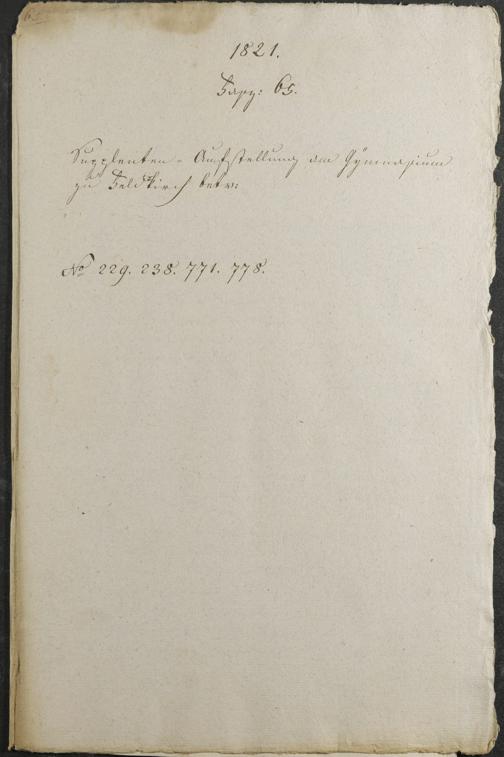 1821.
Fasz: 65.
Supplenten-Aufstellung am Gÿmnasium
zu Feldkirch betr:
No 229. 238. 771. 778.